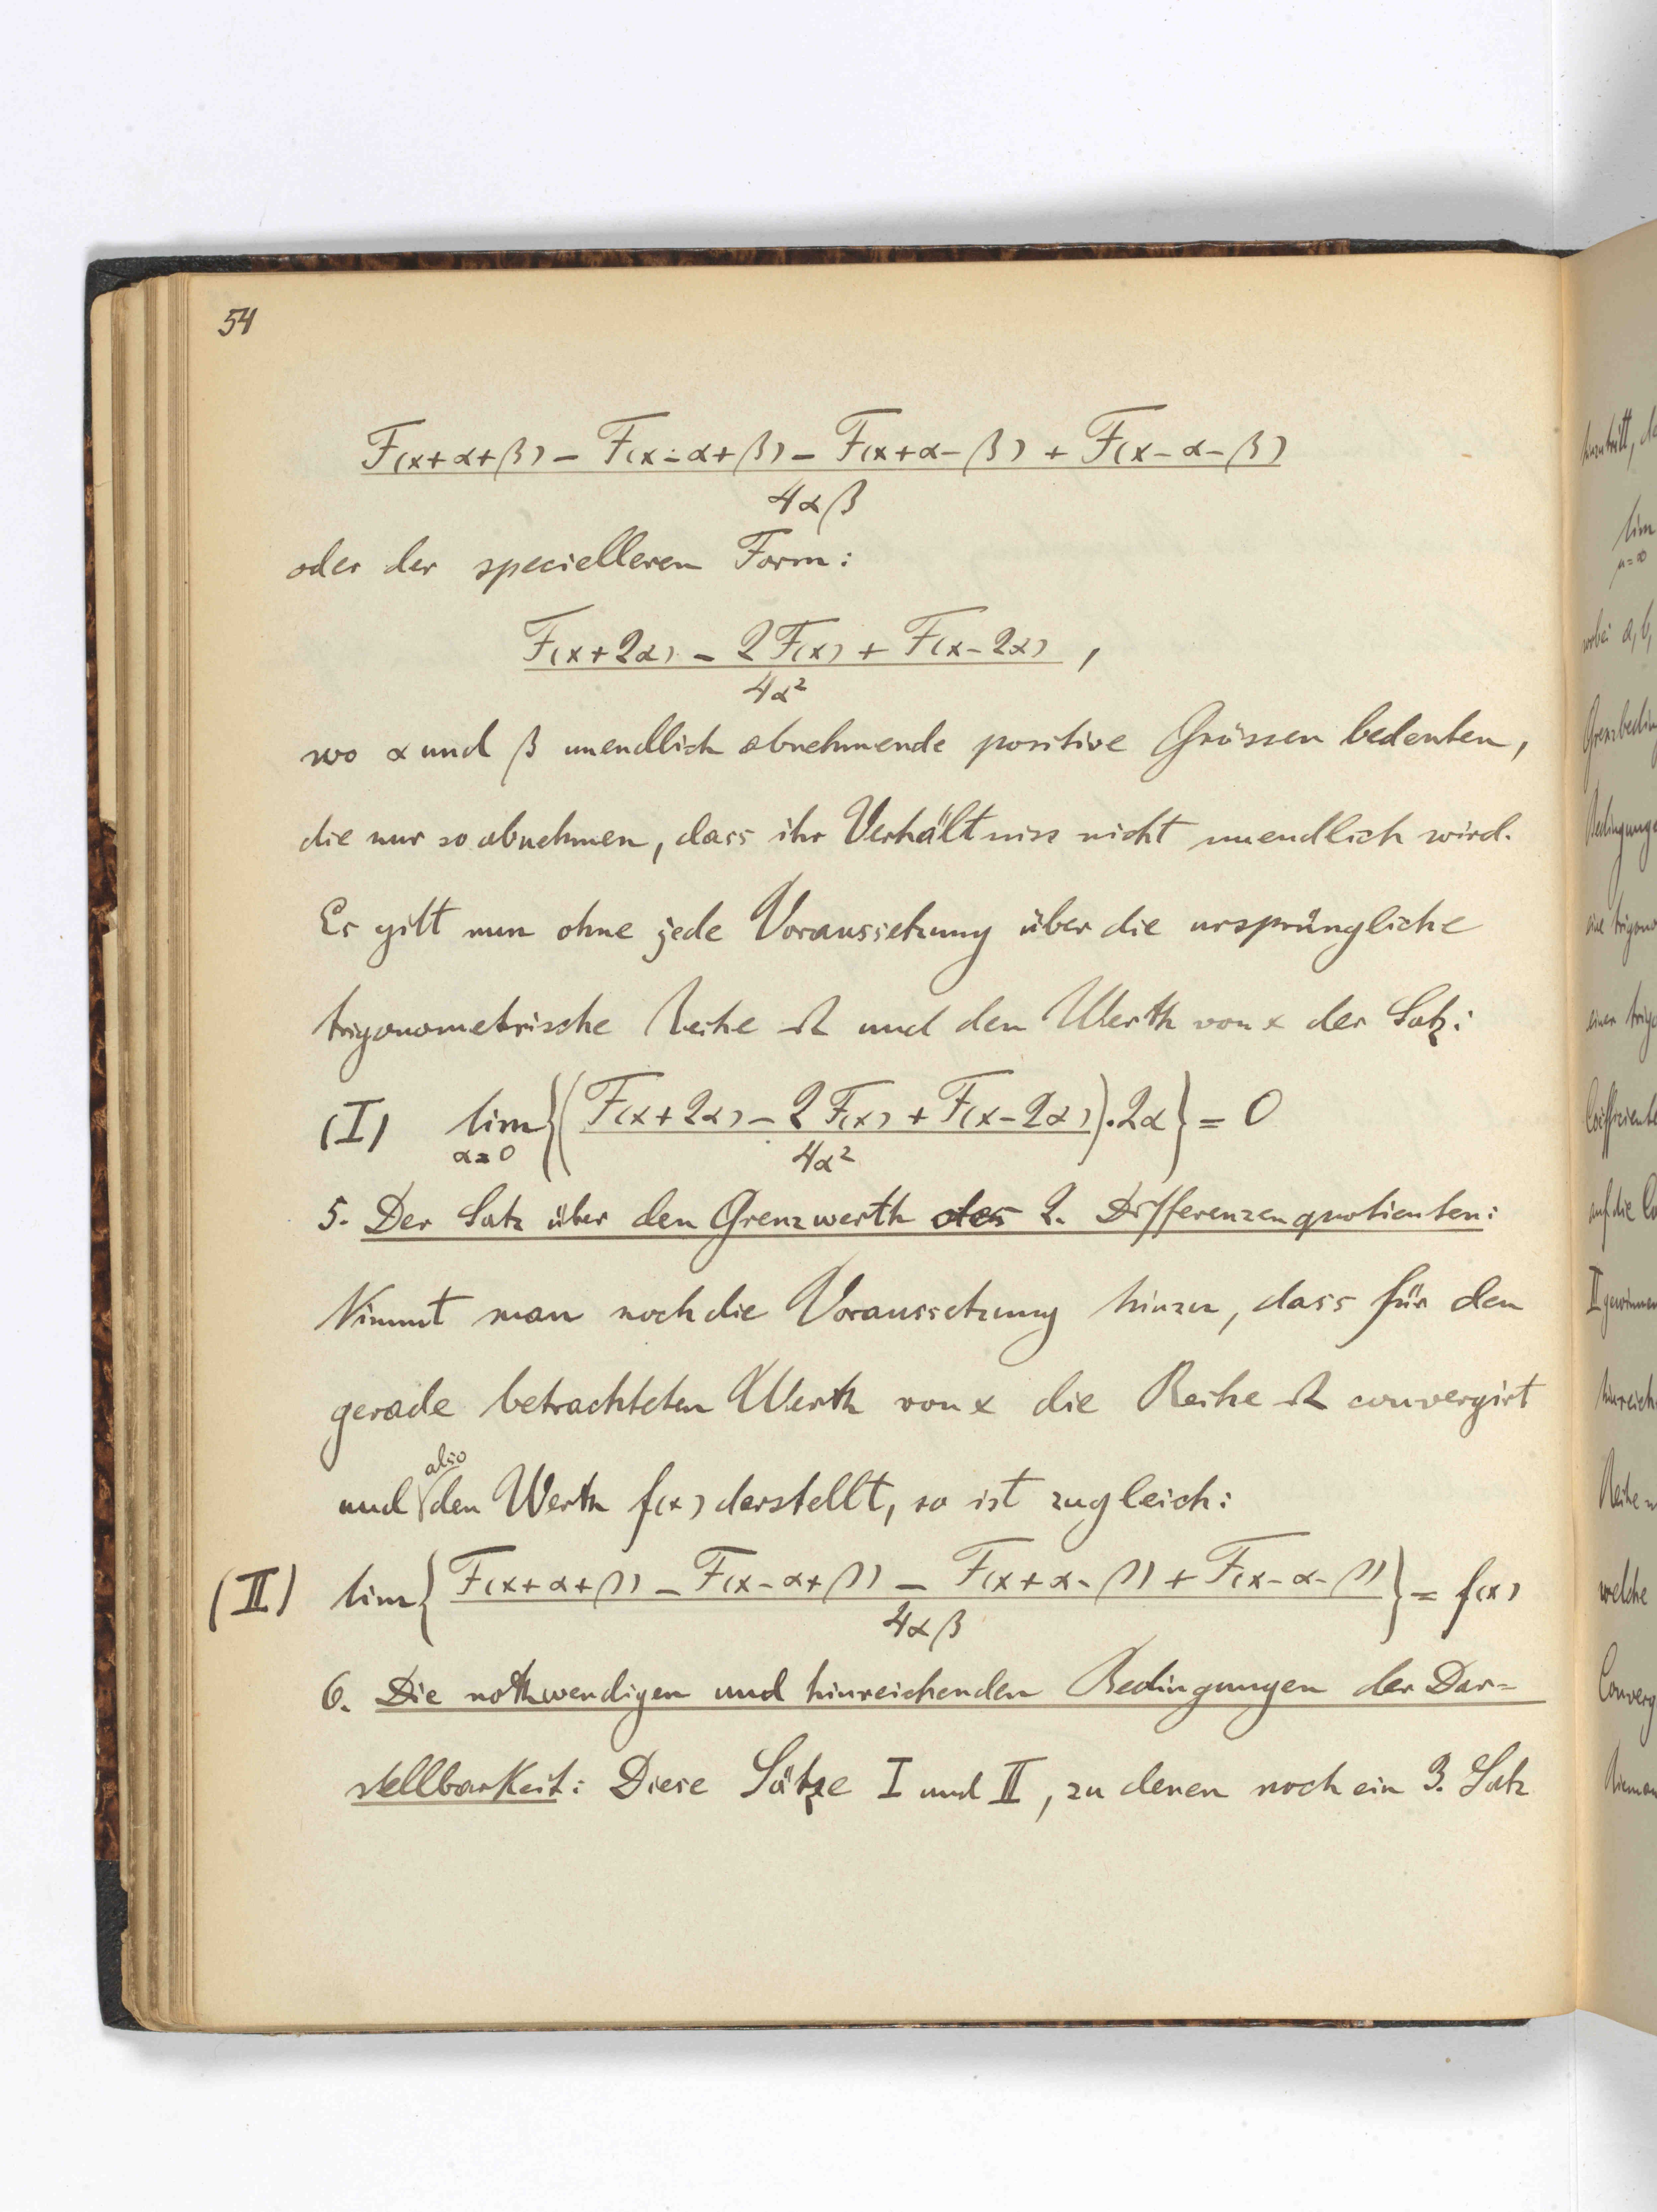 54
F(x+α+β) - F(x-α+β) - F(x+α-β) + F(x-α-β)
4αβ
oder der specielleren Form:
F(x+2α) - 2F(x) + F(x-2α) ,
4α²
wo α und β unendlich abnehmende positive Grössen bedeuten,
die nur so abnehmen, dass ihr Verhältniss nicht unendlich wird.
Es gilt nun ohne jede Voraussetzung über die ursprüngliche
trigonometrische Reihe Ω und den Werth von x der Satz:
(I) lim {( F(x+2α) - 2F(x) + F(x-2α) ) . 2α} = 0
α=0 4α²
5. Der Satz über den Grenzwerth des 2. Differenzenquotienten:
Nimmt man noch die Voraussetzung hinzu, dass für den
gerade betrachteten Werth von x die Reihe Ω convergirt
also
und den Werth f(x) darstellt, so ist zugleich:
(II) lim { F(x+α+β) - F(x-α+β) - F(x+α-β) + F(x-α-β) } = f(x)
4αβ
6. Die nothwendigen und hinreichenden Bedingungen der Dar=
stellbarkeit: Diese Sätze I und II, zu denen noch ein 3. Satz
hinzutritt,
lim
μ=∞
wobei a, b,
eine
einer
auf die
II
Reihe
welche